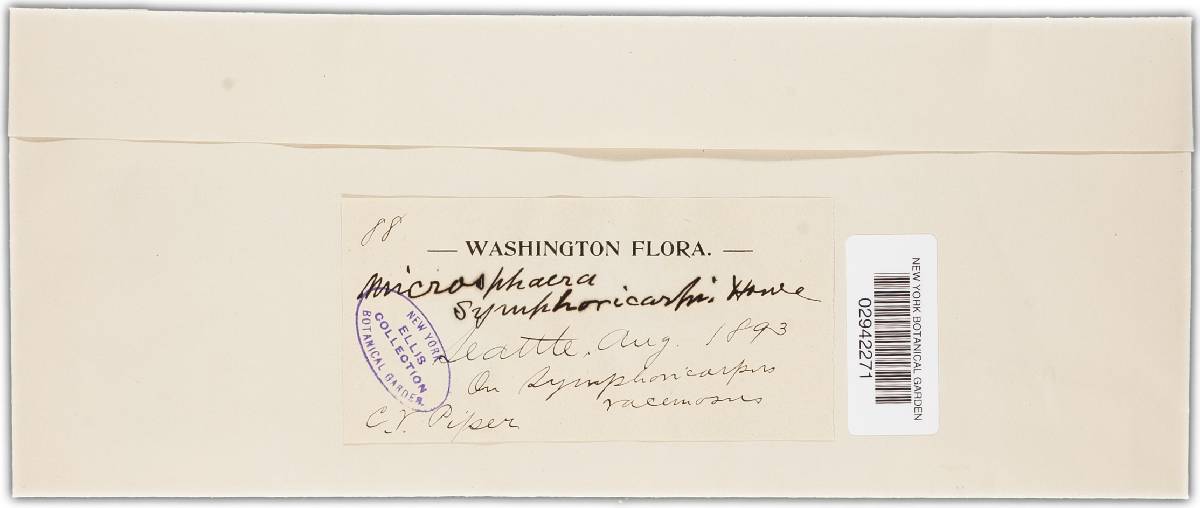 88
— WASHINGTON FLORA. —
Microsphaera
Symphoricarpi. Howe
Seattle, Aug. 1893
On Symphoricarpus
racemosus
C.V. Piper
NEW YORK
ELLIS
COLLECTION
BOTANICAL GARDEN.
NEW YORK BOTANICAL GARDEN
02942271